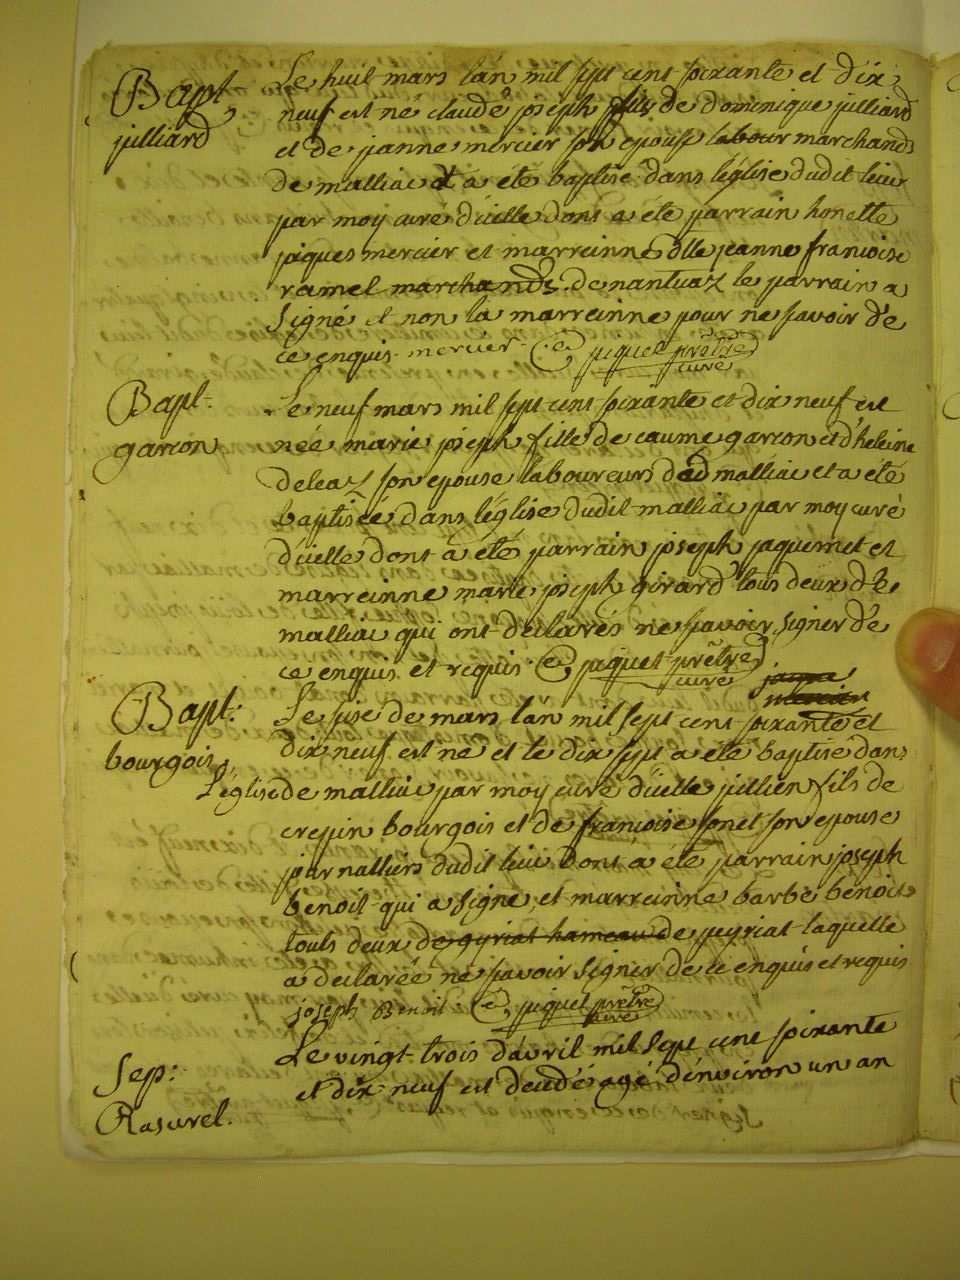 Bapt
julliard
Le huit mars lan mil sept cent soixante et dix
neuf est né claude joseph fils de dominique julliard
et de janne mercier son epouse labour marchands
de malliac et a eté baptisé dans léglise dudit lieu
par moy curé d'icelle dont a été parrain honette
jaques mercier et marreinne dlle jeanne francoise
ramel marchands de nantuaz le parrain a
signé et non la marreinne pour ne savoir de
ce enquis mercier piquet prêtre
curé
Bapt.
garcon
Le neuf mars mil sept cent soixante et dix neuf est
née marie joseph fille de caume garcon et d'heleine
deleaz son epouse laboureurs de malliac et a eté
baptisée dans léglise dudit malliac par moy curé
d'icelle dont a été parrain joseph jaquemet et
marreinne marie joseph girard tous deux de
malliac qui ont declarés ne savoir signer de
ce enquis et requis piquet prêtre
curé
jaque
mercier
Bapt:
bourgois
Le sise de mars lan mil sept cent soixante et
dix neuf est né et le dix sept a eté baptisé dans
l'église de malliac par moy curé d'icelle jullien fils de
crepin bourgois et de francoise sonet son epouse
journalliers dudit lieu dont a été parrain joseph
benoit qui a signé et marreinne barbe benoit
touts deux de gyriat hameau de peyriat laquelle
a declarée ne savoir signer de ce enquis et requis
joseph Benoit piquet prêtre
curé
Sep:
Rasurel.
Le vingt trois d'avril mil sept cent soixante
et dix neuf est decedé agé d'environ un an